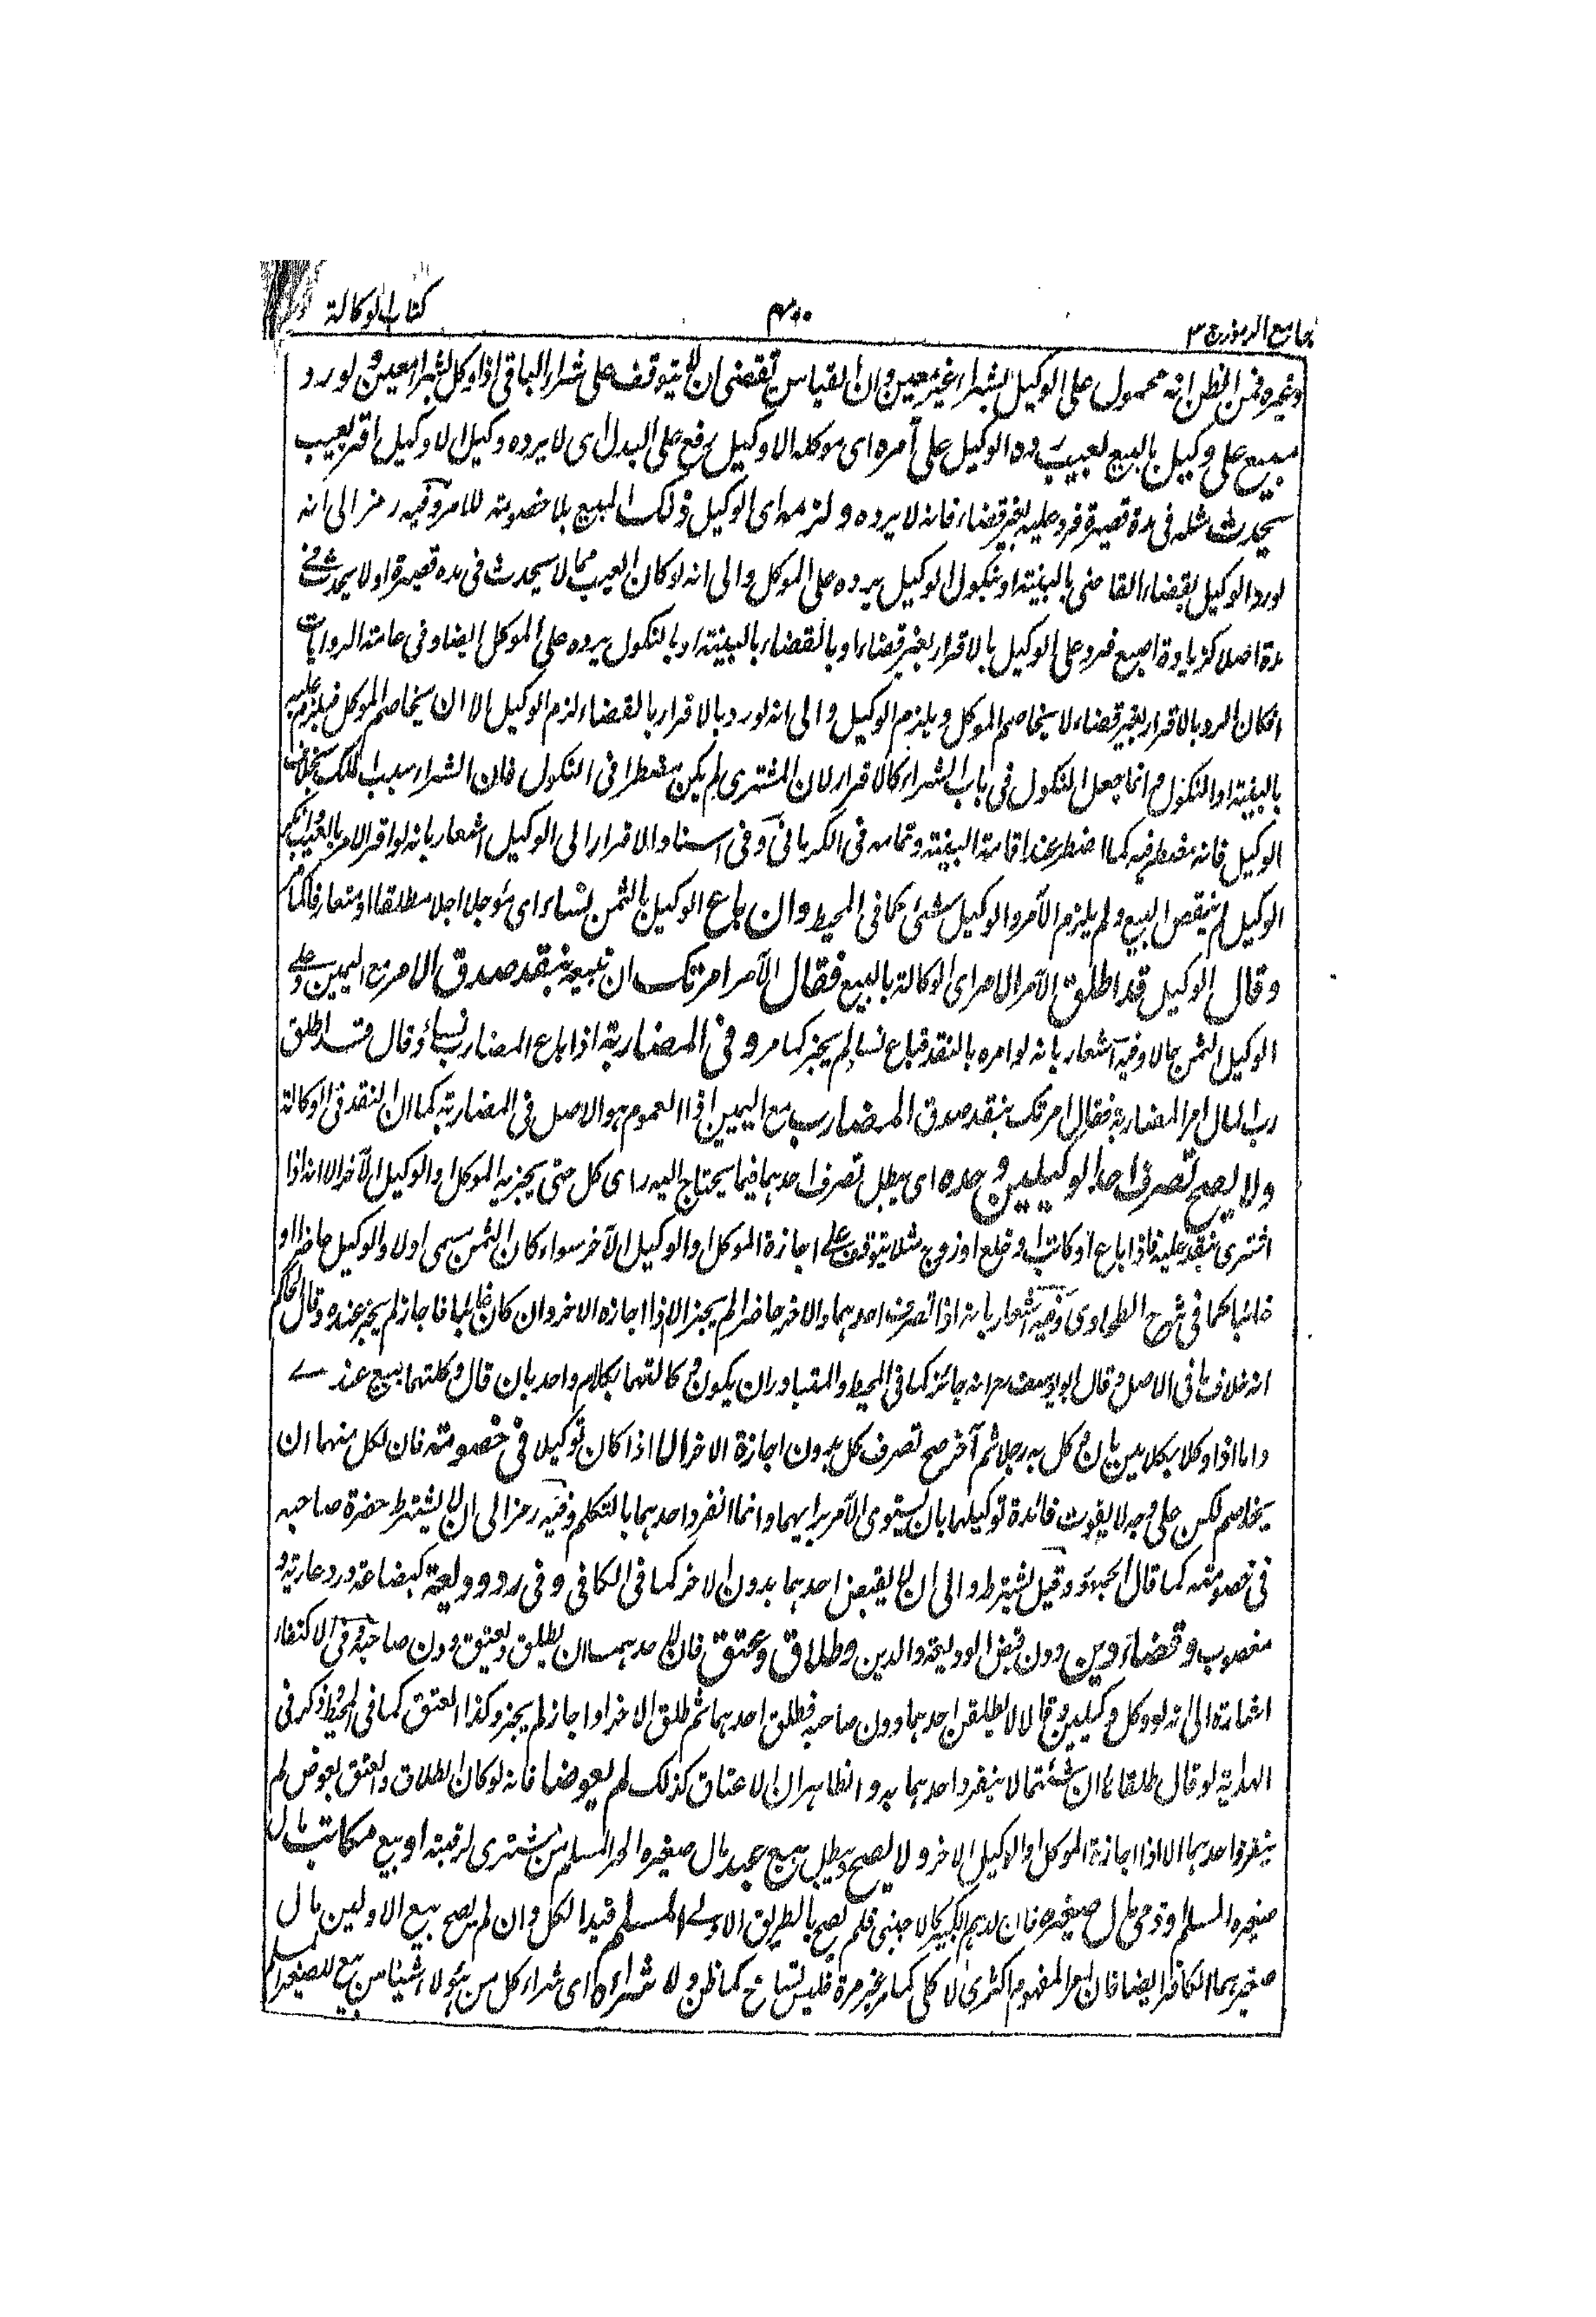 جامع الرموز ج ٣
كتاب الوكالة
وغيره فمن الظن انه محمول على الوكيل بشراء غير معين وان القياس تقتضى ان لا يتوقف على شراء الباقى اذا وكل بشراء معين ولو رد
مبيع على وكيل بالبيع بعيب رده الوكيل على آمره اى موكله الا وكيل رفع على البدل اى لا يرده وكيل الا وكيل اقر بعيب
يحدث مثله فى مدة قصيرة فرد عليه بغير قضاء فانه لا يرده ولزمه اى الوكيل ذلك المبيع بلا خصومته للامر وفيه رمز الى انه
لو رد الوكيل بقضاء القاضى بالبينة او بنكول الوكيل يرده على الموكل والى انه لو كان العيب مما لا يحدث فى مدة قصيرة او لا يحدث فى
مدة اصلا كزيادة اصبع فرد على الوكيل بالاقرار بغير قضاء او بالقضاء بالبينة او بالنكول يرده على الموكل ايضا وفى عامة الروايات
ان كان الرد بالاقرار بغير قضاء لا يخاصم الموكل ويلزم الوكيل والى انه لو رد بالاقرار بالقضاء لزم الوكيل الا ان يخاصم الموكل فيلزم عليه
بالبينة او النكول وانما جعل النكول فى باب الشراء كالاقرار لان المشترى لم يكن مضطرا فى النكول فان الشراء سبب الملك بخلاف
الوكيل فانه مضطر فيه كما اضطر عند اقامة البينة وتمامه فى الكرمانى وفى اسناد الاقرار الى الوكيل اشعار بانه لو اقر الامر بالعيب وانكر
الوكيل لم ينقض البيع ولم يلزم الآمر والوكيل شئ كما فى المحيط وان باع الوكيل بالثمن نساء اى مؤجلا اجلا مطلقا او متعارفا كما مر
وقال الوكيل قد اطلق الآمر الامر اى الوكالة بالبيع فقال الآمر امرتك ان تبيعه بنقد صدق الامر مع اليمين وعلى
الوكيل الثمن حالا وفيه اشعار بانه لو امره بالنقد فباع نساء لم يجز كما مر وفى المضاربة اذا باع المضارب نساء وقال قد اطلق
رب المال امر المضاربة فقال امرتك بنقد صدق المضارب مع اليمين اذ العموم هو الاصل فى المضاربة كما ان النقد فى الوكالة
ولا يصح تصرف احد الوكيلين وحده اى يبطل تصرف احدهما فيما يحتاج اليه راى كل حتى يجيزه الموكل والوكيل الآخر الا انه اذا
اشترى ينقد عليه فاذا باع او كاتب او خلع او زوج مثلا يتوقف على اجازة الموكل او الوكيل الآخر سواء كان الثمن سمى اولا والوكيل حاضرا او
غائبا كما فى شرح الطحاوى وفيه اشعار بانه اذا تصرف احدهما والاخر حاضر لم يجز الا اذا اجازه الاخر وان كان غائبا فاجاز لم يجز عنده وقال الحاكم
انه خلاف ما فى الاصل وقال ابو يوسف رح انه جائز كما فى المحيط والمتبادر ان يكون وكالتهما بكلام واحد بان قال وكلتهما ببيع عندى
واما اذا وكلا بكلامين بان وكل به رجلا ثم آخر صح تصرف كل بدون اجازة الاخر الا اذا كان توكيلا فى خصومته فان لكل منهما ان
يخاصم لكن على وجه لا يفوت فائدة توكيلهما بان يستوى الآمر برايهما وانما انفرد احدهما بالتكلم وفيه رمز الى ان لا يشترط حضرة صاحبه
فى خصومته كما قال الجمهور وقيل يشترط والى ان لا يقبض احدهما بدون الاخر كما فى الكافى وفى رد وديعة كبضاعة ورد عارية و
مغصوب وقضاء دين دون قبض الوديعة والدين وطلاق وعتق فان لاحدهما ان يطلق ويعتق دون صاحبه وفى الاكتفاء
اشارة الى انه لو وكل وكيلين وقال لا يطلقن احدهما دون صاحبه فطلق احدهما ثم طلق الاخر او اجاز لم يجز وكذا العتق كما فى المحيط وذكر فى
الهداية لو قال طلقاها ان شئتما لا ينفرد احدهما به والظاهر ان الاعتاق كذلك لم يعوضا فانه لو كان الطلاق والعتق بعوض لم
ينفرد احدهما الا اذا اجازة الموكل او الوكيل الاخر ولا يصح ويبطل بيع عبد مال صغيره الحر المسلم من يشترى لرقبته او بيع مكاتب مال
صغيره المسلم وذمى مال صغيره فان لديهم الكبير كالاجنبى فلم يصح بالطريق الاولى المسلم قيد الكل وان لم يصح بيع الاولين مال
صغيرهما الكافر ايضا فان امر المفهوم اكثرى لا كلى كما مر غير مرة فليس تسامح كما ظن ولا شراءه اى شراء كل من هؤلاء شيئا من بيع للصغير المسلم